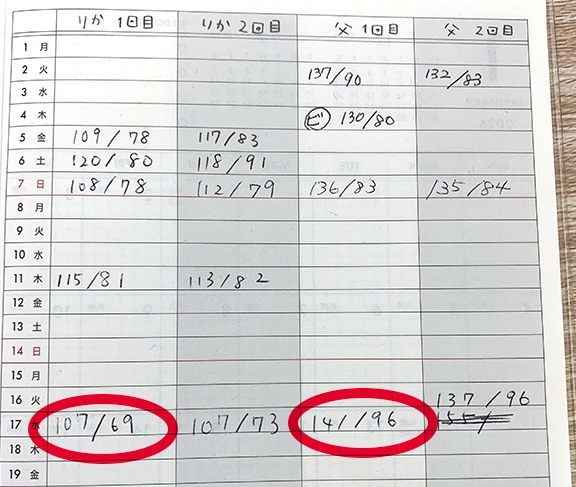 りか 1回目 りか 2回目 父 1回目 父 2回目
1 月
2 火 137/90 132/83
3 水
4 木 ビ 130/80
5 金 109/78 117/83
6 土 120/80 118/91
7 日 108/78 112/79 136/83 135/84
8 月
9 火
10 水
11 木 115/81 113/82
12 金
13 土
14 日
15 月
16 火 137/96
17 水 107/69 107/73 141/96
18 木
19 金